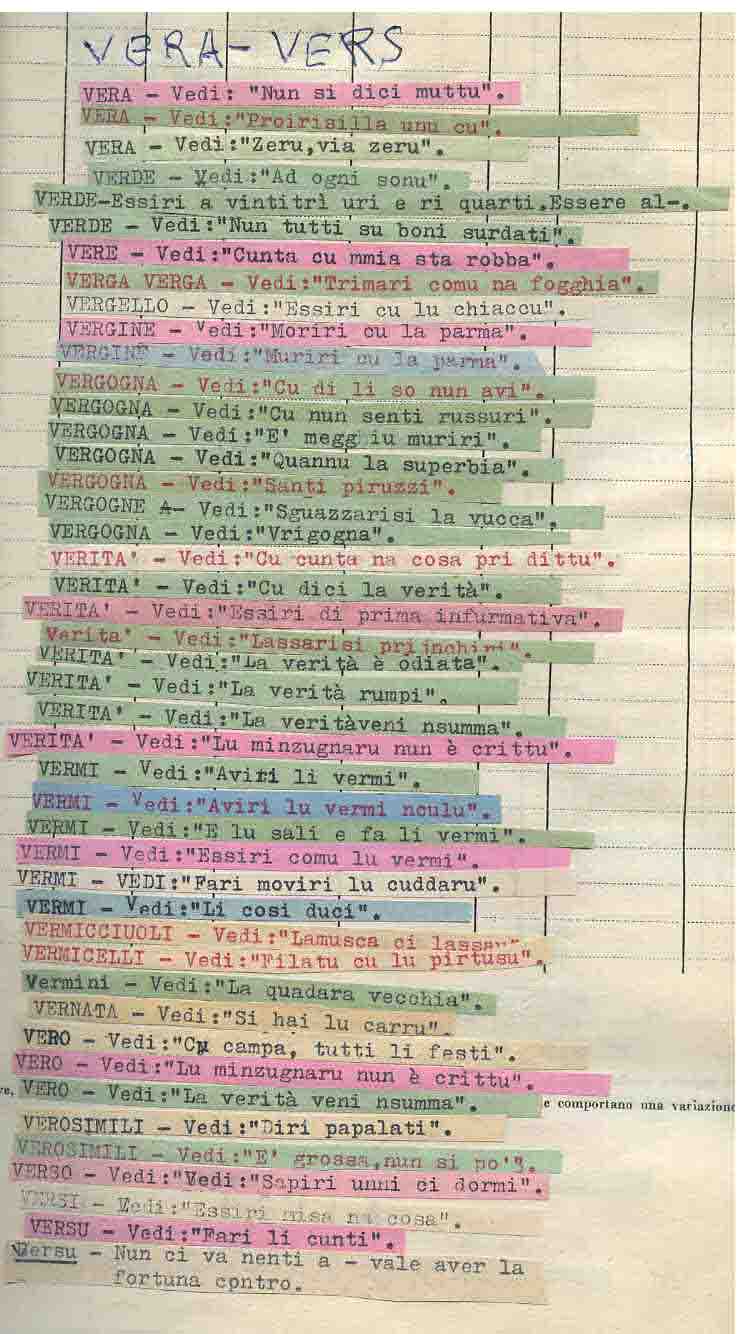 VERA-VERS
VERA - Vedi: "Nun si dici muttu".
VERA - Vedi:"Proirisilla unu cu".
VERA - Vedi:"Zeru,via zeru".
VERDE - Vedi:"Ad ogni sonu".
VERDE-Essiri a vintitrì uri e ri quarti.Essere al-.
VERDE - Vedi:"Nun tutti su boni surdati".
VERE - Vedi:"Cunta cu mmia sta robba".
VERGA VERGA - Vedi:"Trimari comu na fogghia".
VERGELLO - Vedi:"Essiri cu lu chiaccu".
VERGINE - Vedi:"Moriri cu la parma".
VERGINE - Vedi:"Muriri cu la parma".
VERGOGNA - Vedi:"Cu di li so nun avi".
VERGOGNA - Vedi:"Cu nun senti russuri".
VERGOGNA - Vedi:"E' megg iu muriri".
VERGOGNA - Vedi:"Quannu la superbia".
VERGOGNA - Vedi:"Santi piruzzi".
VERGOGNE A- Vedi:"Sguazzarisi la vucca".
VERGOGNA - Vedi:"Vrigogna".
VERITA' - Vedi:"Cu cunta na cosa pri dittu".
VERITA' - Vedi:"Cu dici la verità".
VERITA' - Vedi:"Essiri di prima infurmativa".
Verita' - Vedi:"Lassarisi pri inchiri".
VERITA' - Vedi:"La verità è odiata".
VERITA' - Vedi:"La verità rumpi".
VERITA' - Vedi:"La veritàveni nsumma".
VERITA' - Vedi:"Lu minzugnaru nun è crittu".
VERMI - Vedi:"Aviri li vermi".
VERMI - Vedi:"Aviri lu vermi nculu".
VERMI - Vedi:"E lu sali e fa li vermi".
VERMI - Vedi:"Essiri comu lu vermi".
VERMI - VEDI:"Fari moviri lu cuddaru".
VERMI - Vedi:"Li cosi duci".
VERMICCIUOLI - Vedi:"Lamusca ci lassau".
VERMICELLI - Vedi:"Filatu cu lu pirtusu".
Vermini - Vedi:"La quadara vecchia".
VERNATA - Vedi:"Si hai lu carru".
VERO - Vedi:"Cu campa, tutti li festi".
VERO - Vedi:"Lu minzugnaru nun è crittu".
ve, VERO - Vedi:"La verità veni nsumma". e comportano una variazione
VEROSIMILI - Vedi:"Diri papalati".
VEROSIMILI - Vedi:"E' grossa,nun si po'".
VERSO - Vedi:"Vedi:"Sapiri unni ci dormi".
VERSI - Vedi:"Essiri misa na cosa".
VERSU - Vedi:"Fari li cunti".
Versu - Nun ci va nenti a - vale aver la
fortuna cpntro.